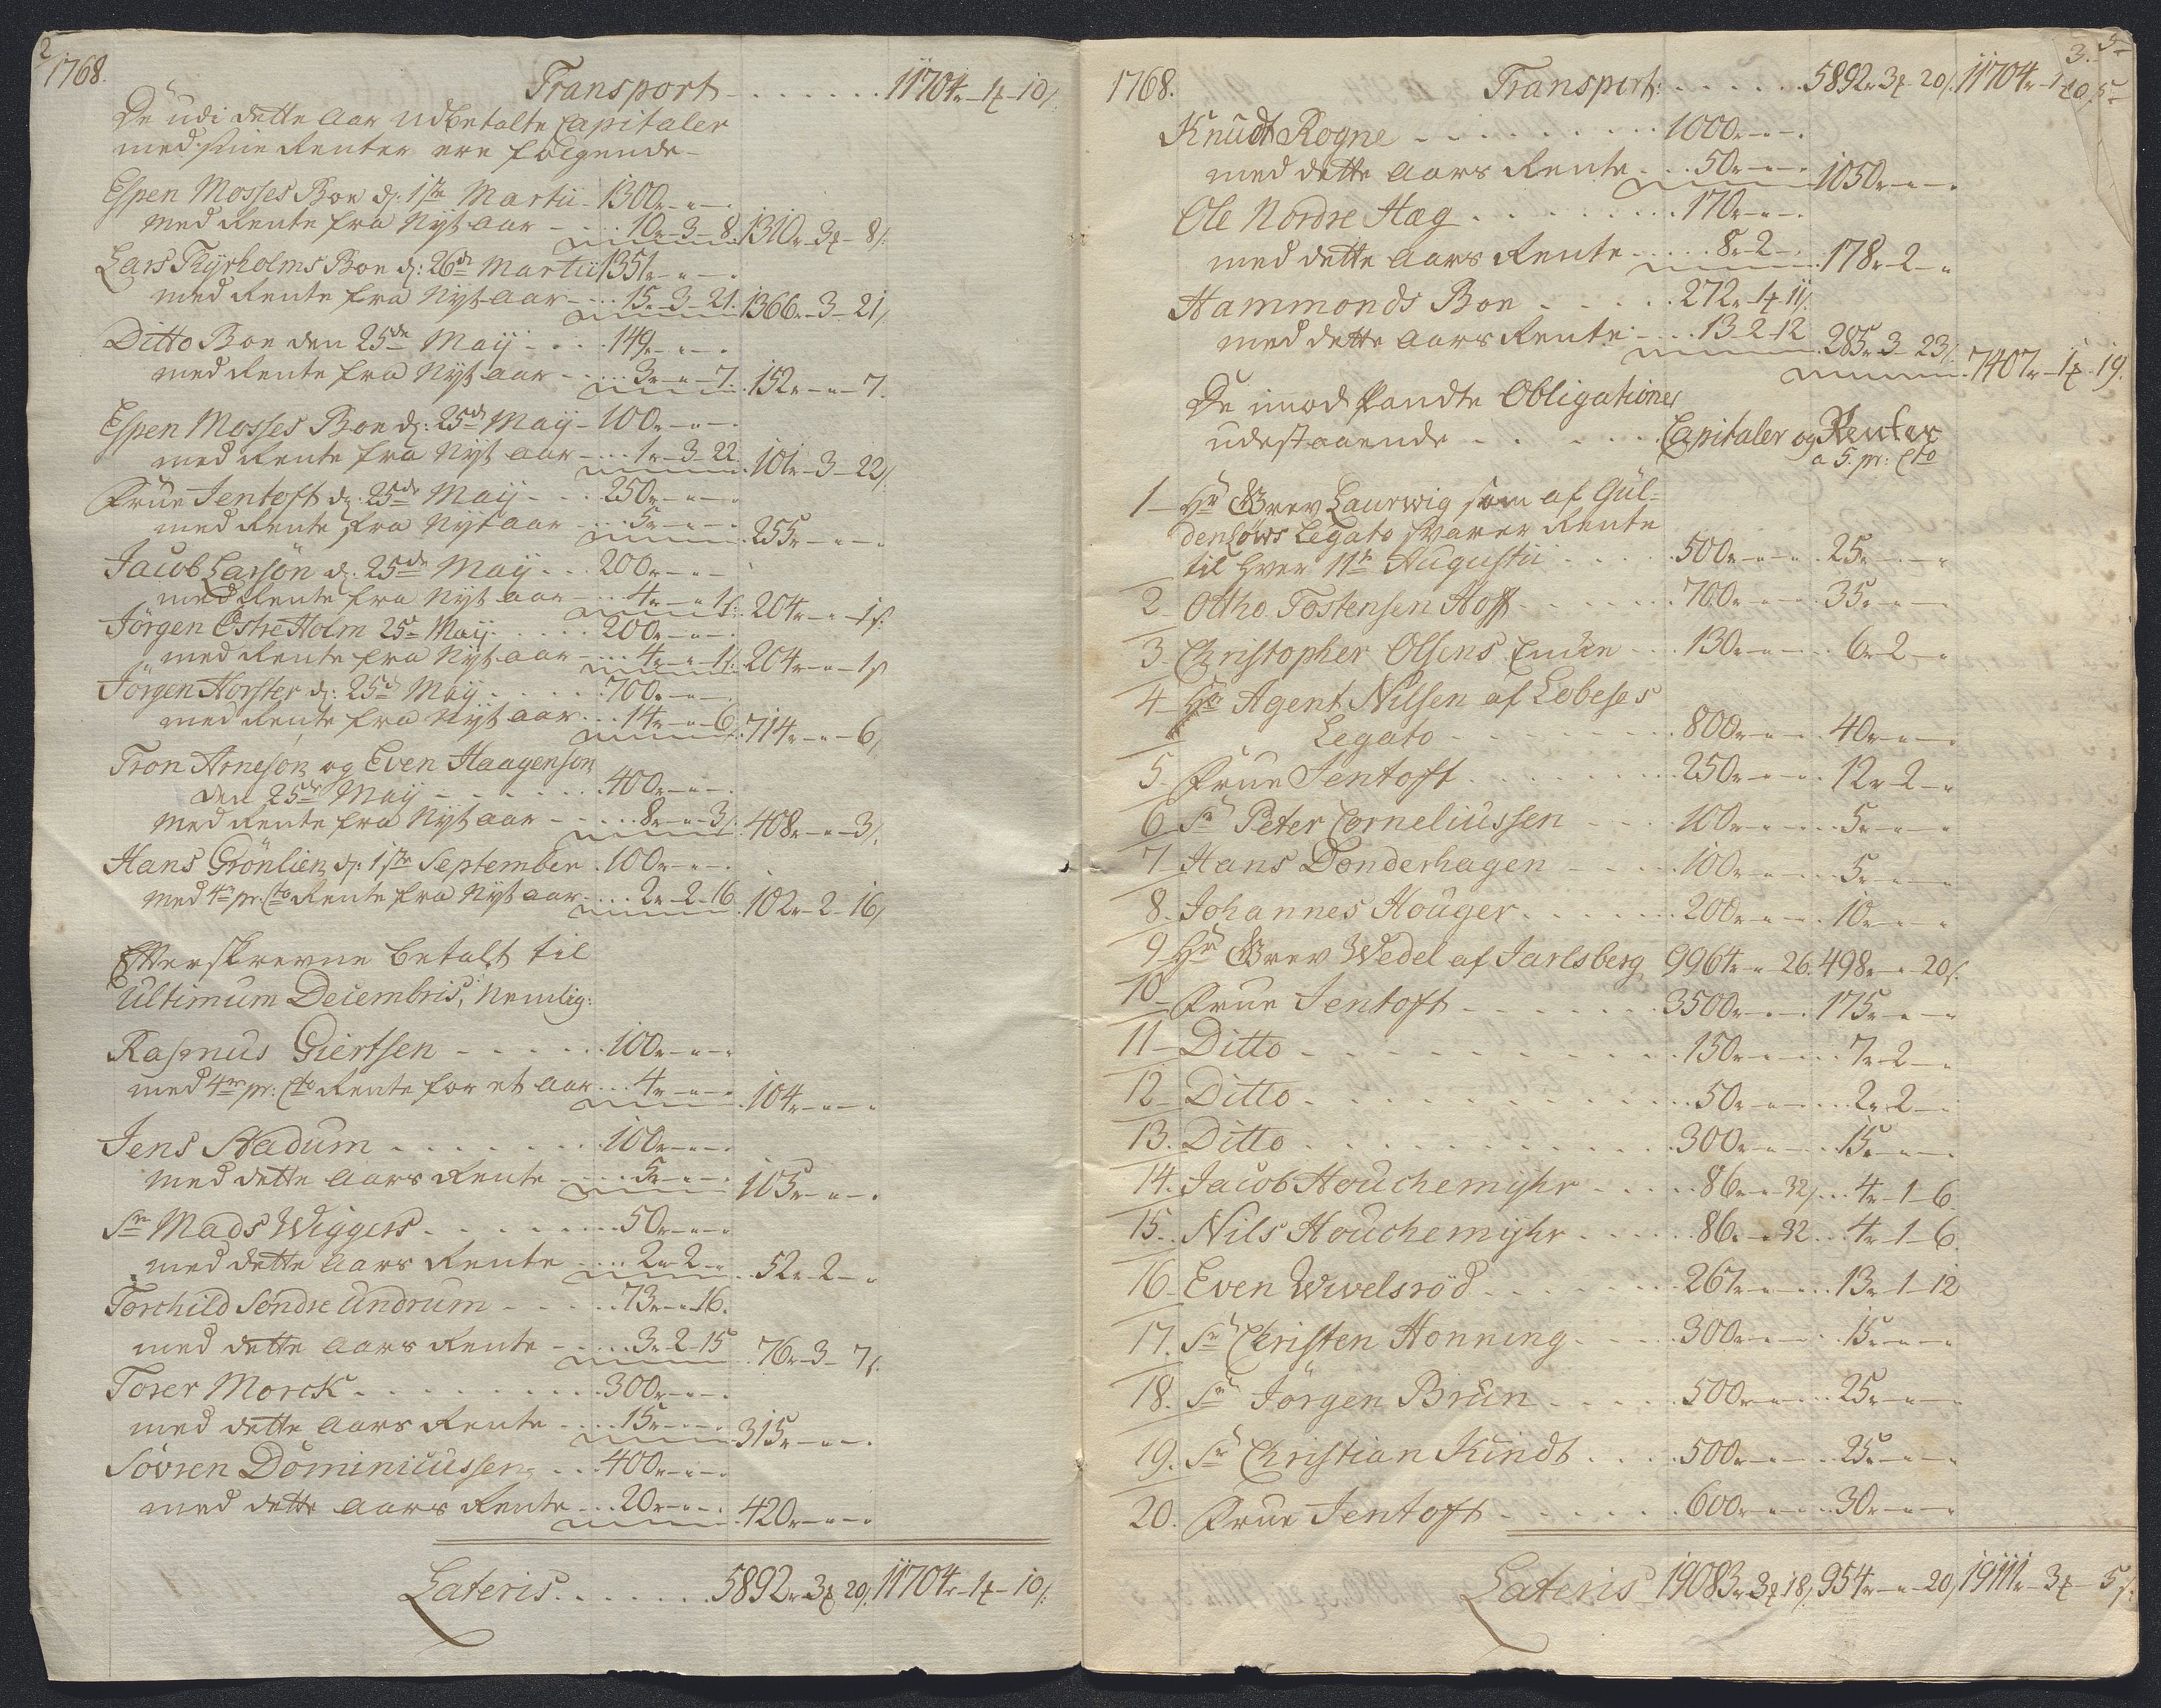 2
1768.
Transport - . . . . . . 11704r-1f-10s.
De udi dette Aar Udbetalte Capitaler
med sine Renter ere følgende-
Espen Mosses Boe d: 1ste Martii - 1300r-"-.
med Rente fra Nyt Aar - . . 10r-3-8. 1310r-3f-8s.
Lars Thyrholms Boe d: 26de Martii 1351r-"-.
med Rente fra Nyt aar - . . . 15-3-21. 1366r-3-21s.
Ditto Boe den 25de Maij - . . . 149r-"-.
med Rente fra Nyt aar - . . . 3r-"-7. 152r-"-7.
Espen Mosses Boe d: 25de Maij - 100r-"-.
med Rente fra Nyt aar - . . . 1r-3-22. 101r-3-22s.
Frue Jentoft d: 25de Maij - . . 250r-"-.
med Rente fra Nyt aar - . . . 5r-"-. 255r-"-"
Jacob Larsön d: 25de Maij . . . 200r-"-
med Rente fra Nyt aar - . . 4r-"-1s. 204r-"-1s.
Jörgen Östre Holm 25de Maij . . . . . 200r-"-.
med Rente fra Nyt aar - . . . 4r-"-1s. 204r-"-1s
Jörgen Horster d: 25de Maij . . . . . 700r-"-.
med Rente fra Nyt aar . . . 14r-"-6. 714r-"-6s.
Tron Arneson og Even Haagenson
den 25de Maij - . . . . . . 400r-"-.
med Rente fra Nyt aar - . . . . 8r-"-3s. 408r-"-3s.
Hans Grönlien d: 1ste September . 100r-"-.
med 4r pr. Cto Rente fra Nyt aar . . . 2r-2-16 102r-2-16s.
Efterskrevne betalt til
Ultimum Decembris, Nemlig:
Rasmus Giertsen - . . . . . 100r-"-"
med 4r pr: Cto Rente for et aar . . . 4r-"-" 104r-"-"
Jens Stadum . . . . . . . . 100r-"-.
med dette aars Rente - . . . 5r-"-. 105r-"-.
Sr Mads Wiggers . . . . . . . . 50r-"-"
med dette aars Rente . . . 2r-2-" 52r-2-"
Torchild Söndre Undrum - . . . . 73r-"-16.
med dette aars Rente - . . . . 3r-2-15 76r-3-7s.
Torer Morck . . . . . . . . . . 300r-"-.
med dette aars Rente - . . . 15r-"-. 315r-"-.
Sövren Dominicussen . . . 400r-"-.
med dette aars Rente . . . 20r-"-. 420r-"-"
Lateris . . . . . . . 5892r-3f 20s. 11704r-1f-10s.
3.
1768. Transport: . . . . . . 5892r 3f 20s. 11704r-1-10s.
Knudt Rogne - . . . . . . . . 1000r-"-.
med dette aars Rente . . . 50r-"-. 1050r-"-.
Ole Nordre Hæg . . . . . . . . 170r-"-.
med dette aars Rente . . . . 8r-2-. 178r-2-"
Hammonds Boe - . . . . . 272r-1f-11s.
med dette aars Rente - . . . 13-2-12 285r-3-23s. 7407r-1f-19.
De imod Pandte Obligationer
udestaaende . . . . . . Capitaler og Renter
a 5. pr: Cto
1- Hr Grev Laurwig som af Gül-
denlöws Legato svarer Rente
til hver 11te Augustii . . . . 500r-"-" 25r-"-"
2- Otho Tostensen Hoff . . . . . . 700r-"-. 35r-"-
3- Christopher Olsens Enke . . . 130r-"-. 6r-2-"
4- Hr Agent Nilsen af Lobeses
Legato - . . . . . . . . 800r-"-. 40r-"-.
5. Frue Jentoft . . . . . . . . . 250r-"-. 12r-2-"
6 Sr Peter Corneliussen . . . . 100r-"-. 5r-"-"
7 Hans Donderhagen - . . . . 100r-"-. 5r-"-"
8. Johannes Houger . . . . . . . 200r-"-. 10r-"-"
9 Hr Grev Wedel af Jarlsberg 9964r-"-26. 498r-"-20s.
10- Frue Jentoft - . . . . . . . . 3500r-"-. 175r-"-"
11- Ditto - . . . . . . . . . . . 150r-"-. 7r-2-"
12- Ditto . . . . . . . . . . . . 50r-"-. 2r-2-"
13. Ditto . . . . . . . . . . . . 300r-"-. 15r-"-.
14. Jacob Houchemyhr . . . . . 86r-"-32s. . . 4r-1-6
15. Nils Houchemyhr . . . . . . 86r-"-32 . . 4r-1-6.
16. Even Wivelsröd . . . . . . . 267r-"-. 13r-1-12
17. Sr Christen Honning . . . . . 300r-"-. 15r-"-"
18. Sr Jörgen Brün . . . . . 500r-"-. 25r-"-"
19. Sr Christian Kindt . . . . 500r-"-. 25r-"-"
20. Frue Jentoft . . . . . . . . 600r-"-. 30r-"-"
Lateris 19083r 3f 18s. 954r-"-20s 19111r-3f-5s.